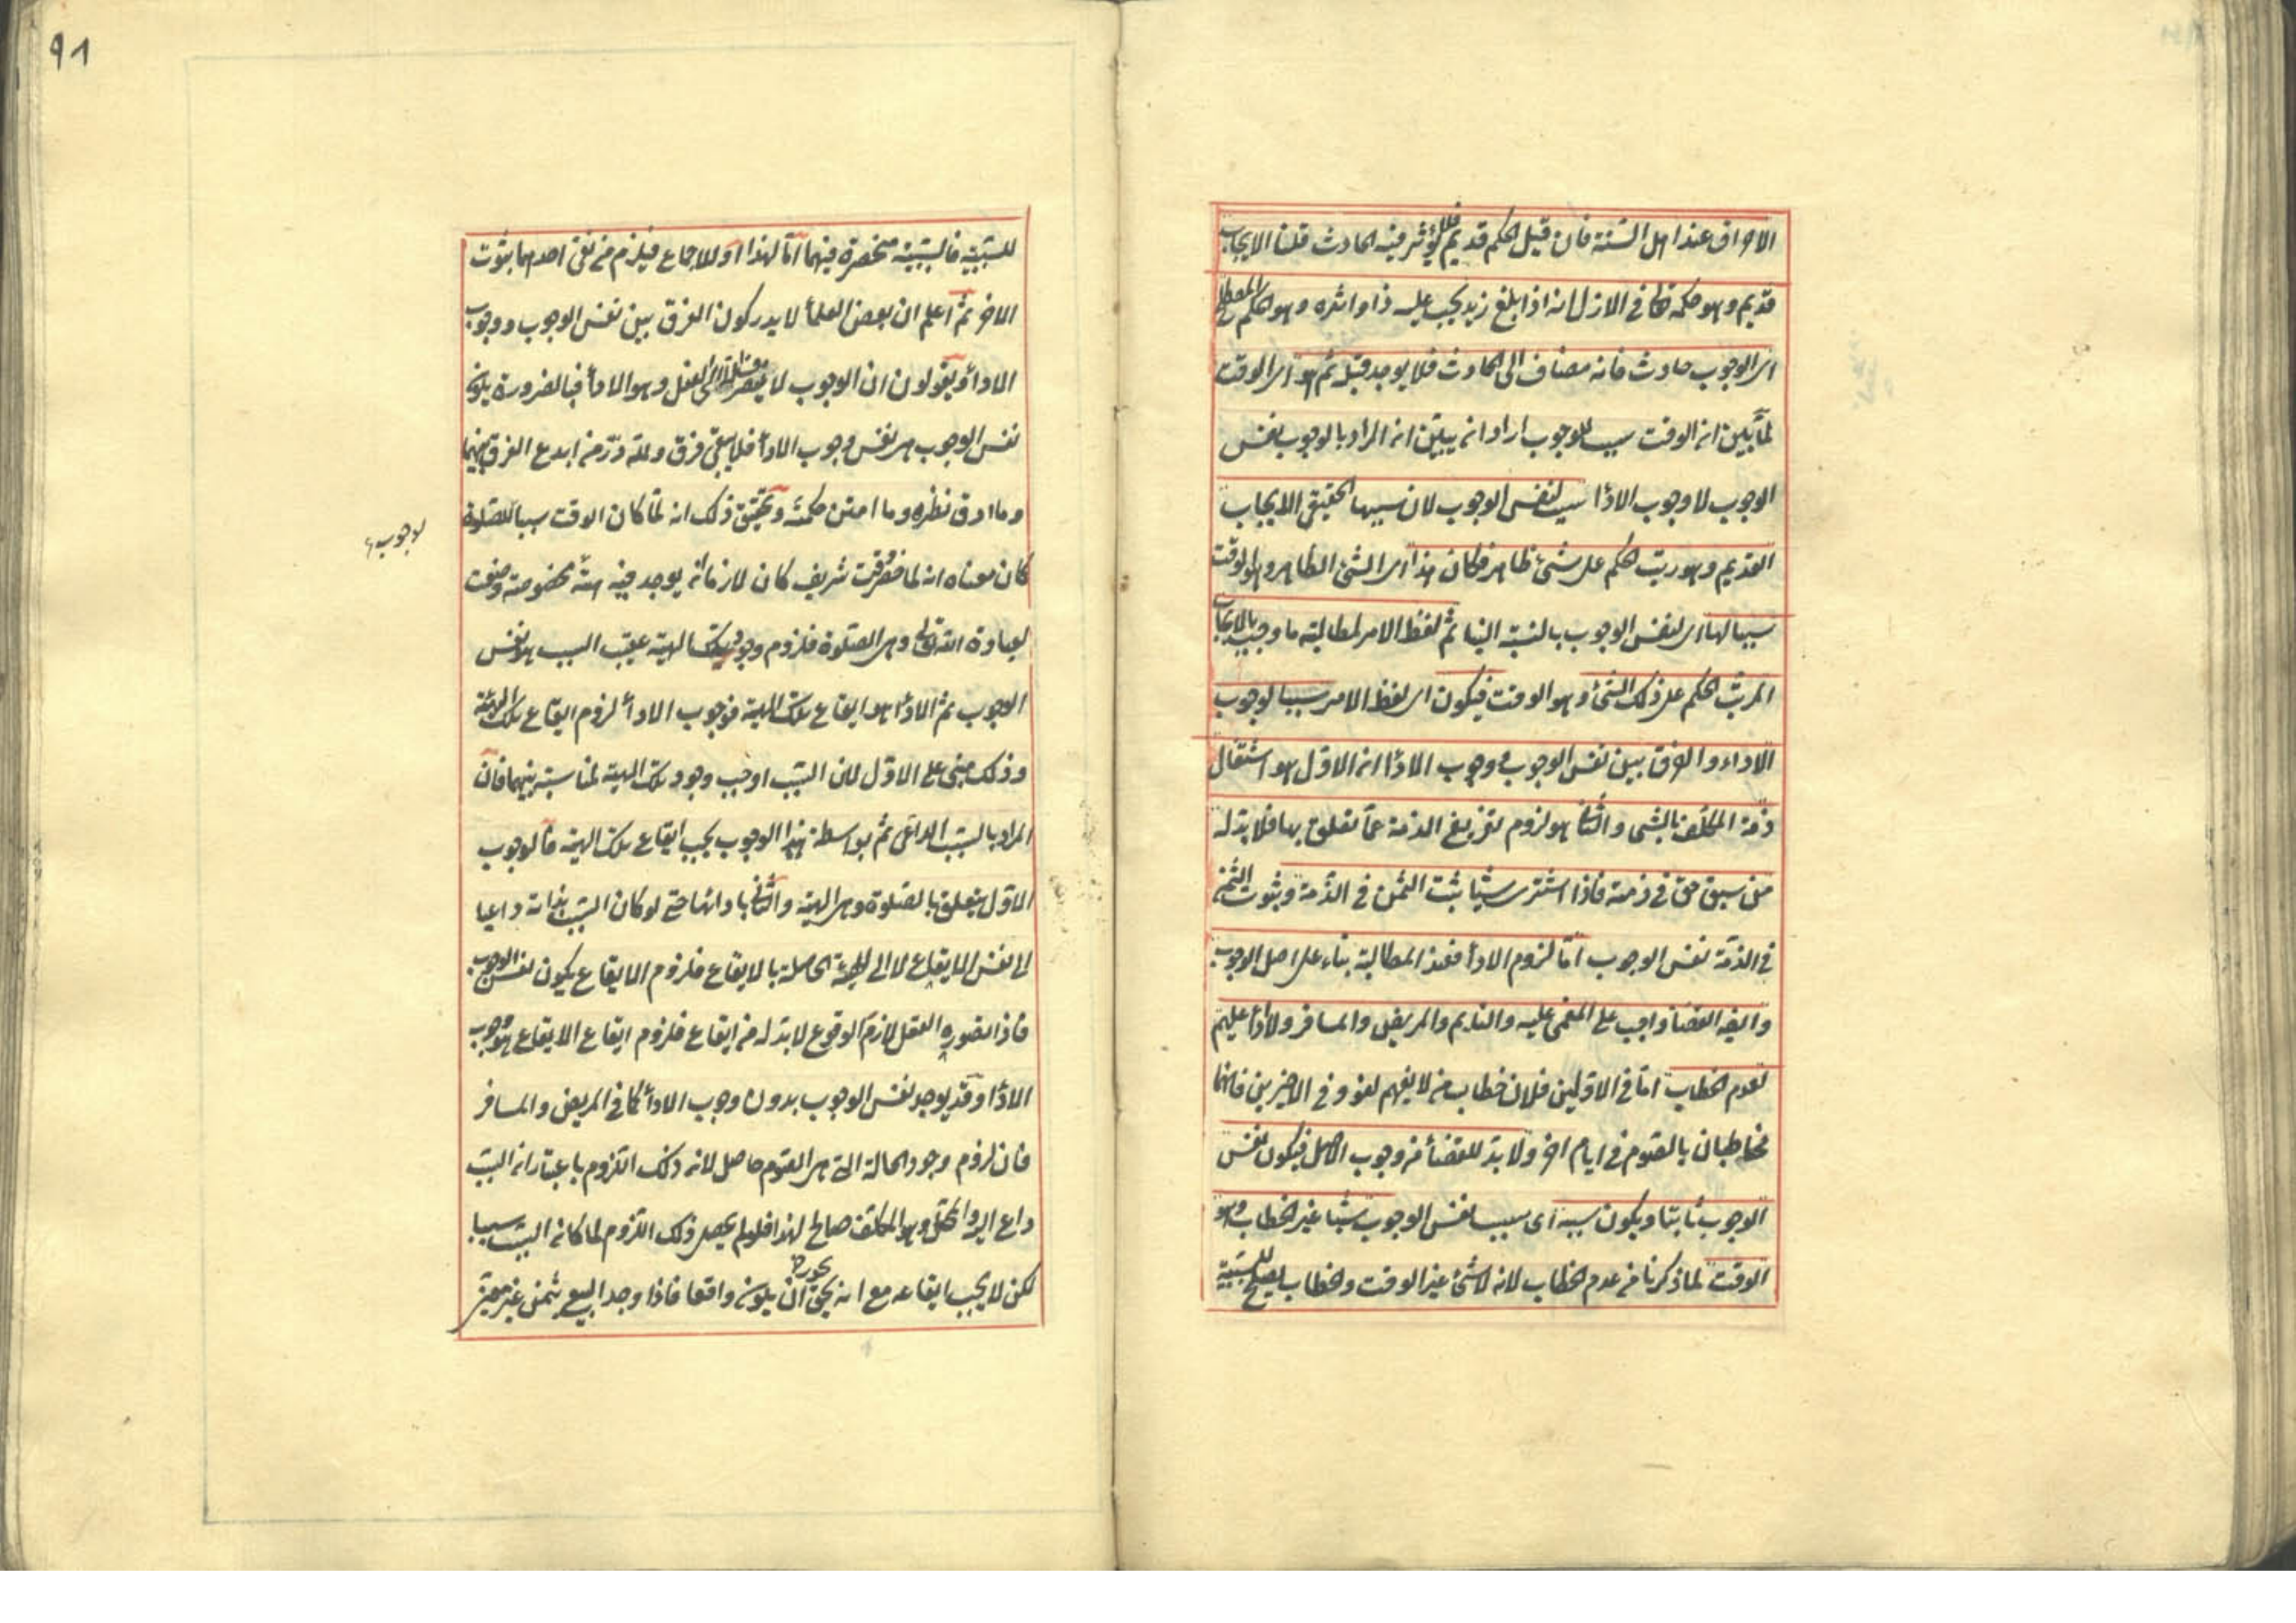 الاحراق عند اهل السنة فان قيل الحكم قديم فلا يؤثر فيه الحادث قلنا الايجاب
قديم وهو حكمه تعالى في الازل انه اذا بلغ زيد يجب عليه ذا واثره وهو الحكم المصطلح
اى الوجوب حادث فانه مضاف الى الحادث فلا يوجد قبله ثم هو اى الوقت
لما بين ان الوقت سبب للوجوب اراد ان يبين ان المراد بالوجوب نفس
الوجوب لا وجوب الاداء سبب لنفس الوجوب لان سببها الحقيقى الايجاب
القديم وهو رتب الحكم على شئ ظاهر فكان هذا اى الشئ الظاهر وهو الوقت
سببا لها اى لنفس الوجوب بالنسبة الينا ثم لفظ الامر لمطالبة ما وجب بالايجاب
المرتب الحكم على ذلك الشئ وهو الوقت فيكون اى لفظ الامر سببا لوجوب
الاداء والفرق بين نفس الوجوب ووجوب الاداء ان الاول هو اشتغال
ذمة المكلف بالشئ والثانى هو لزوم تفريغ الذمة عما تعلق بها فلا بد له
من سبق حق في ذمته فاذا اشترى شيئا يثبت الثمن في الذمة وثبوت الثمن
في الذمة نفس الوجوب اما لزوم الاداء فعند المطالبة بناء على اصل الوجوب
وايضا القضاء واجب على المغمى عليه والنايم والمريض والمسافر ولا اداء عليهم
لعدم الخطاب اما في الاولين فلان خطاب من لا يفهم لغو وفي الاخيرين فانهما
مخاطبان بالصوم في ايام اخر ولا بد للقضاء من وجوب الاصل فيكون نفس
الوجوب ثابتا ويكون سببه اى سبب نفس الوجوب شيئا غير الخطاب وهو
الوقت لما ذكرنا من عدم الخطاب لانه لا شئ غير الوقت والخطاب يصلح للسببية
91
للسببية فالسببية منحصرة فيهما اما لهذا او للاجماع فيلزم من نفى احدهما ثبوت
الاخر ثم اعلم ان بعض العلماء لا يدركون الفرق بين نفس الوجوب ووجوب
الاداء ويقولون ان الوجوب لا ينصرف الا الى الفعل وهو الاداء فبالضرورة يكون
نفس الوجوب هى نفس وجوب الاداء فلا يبقى فرق ولله در من ابدع الفرق بينهما
وما ادق نظره وما امتن حكمته وتحقيق ذلك انه لما كان الوقت سببا للصلوة
لوجوب
كان معناه انه لما حضر وقت شريف كان لازما ان يوجد فيه هيئة مخصوصة وضعت
لعبادة الله تعالى وهى الصلوة فلزوم وجود تلك الهيئة عقيب السبب هو نفس
الوجوب ثم الاداء هو ايقاع تلك الهيئة فوجوب الاداء لزوم ايقاع تلك الهيئة
وذلك مبنى على الاول لان السبب اوجب وجود تلك الهيئة لمناسبة بينهما فان
المراد بالسبب الداعى ثم بواسطة هذا الوجوب يجب ايقاع تلك الهيئة فالوجوب
الاول يتعلق بالصلوة وهى الهيئة والثانى بادائها حتى لو كان السبب بذاته داعيا
الى نفس الايقاع لا الى الهيئة الحاصلة بالايقاع فلزوم الايقاع يكون نفس الوجوب
فاذا تصوره العقل لازم الوقوع لا بد له من ايقاع فلزوم ايقاع الايقاع هو وجوب
الاداء وقد يوجد نفس الوجوب بدون وجوب الاداء كما في المريض والمسافر
فان لزوم وجود الحالة التى هى الصوم حاصل لان ذلك اللزوم باعتبار ان السبب
داع اليه والمحل وهو المكلف صالح لهذا فلو لم يحصل ذلك اللزوم لما كان السبب سببا
لكن لا يجب ايقاعه مع انه يجوز ان يكون واقعا فاذا وجد البيع بثمن غير معين